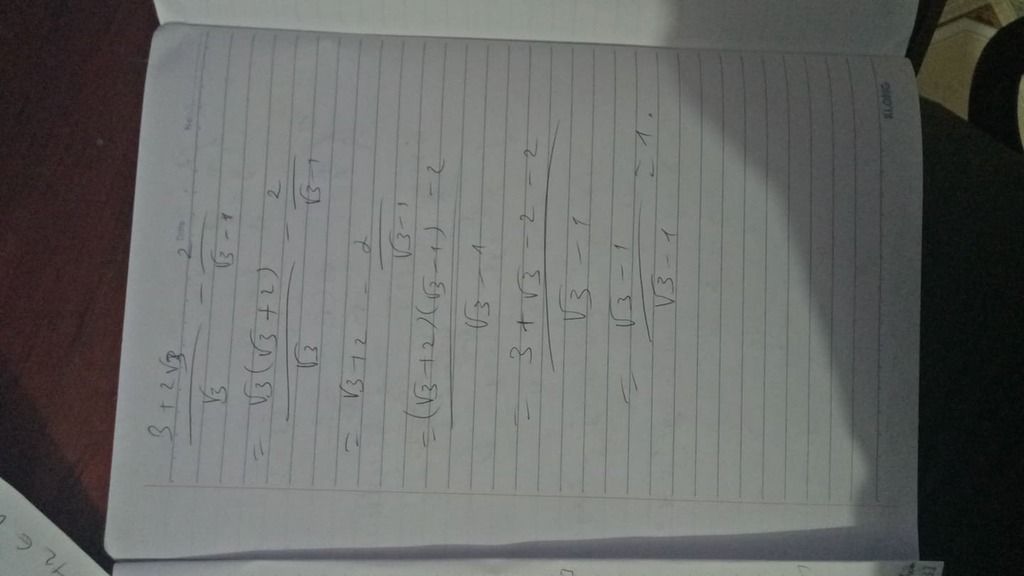 (3 + 2√3)/√3 - 2/(√3 - 1)
= √3(√3 + 2)/√3 - 2/(√3 - 1)
= √3 + 2 - 2/(√3 - 1)
= ((√3 + 2)(√3 - 1) - 2)/(√3 - 1)
= (3 + √3 - 2 - 2)/(√3 - 1)
= (√3 - 1)/(√3 - 1) = 1.
KLONG
126